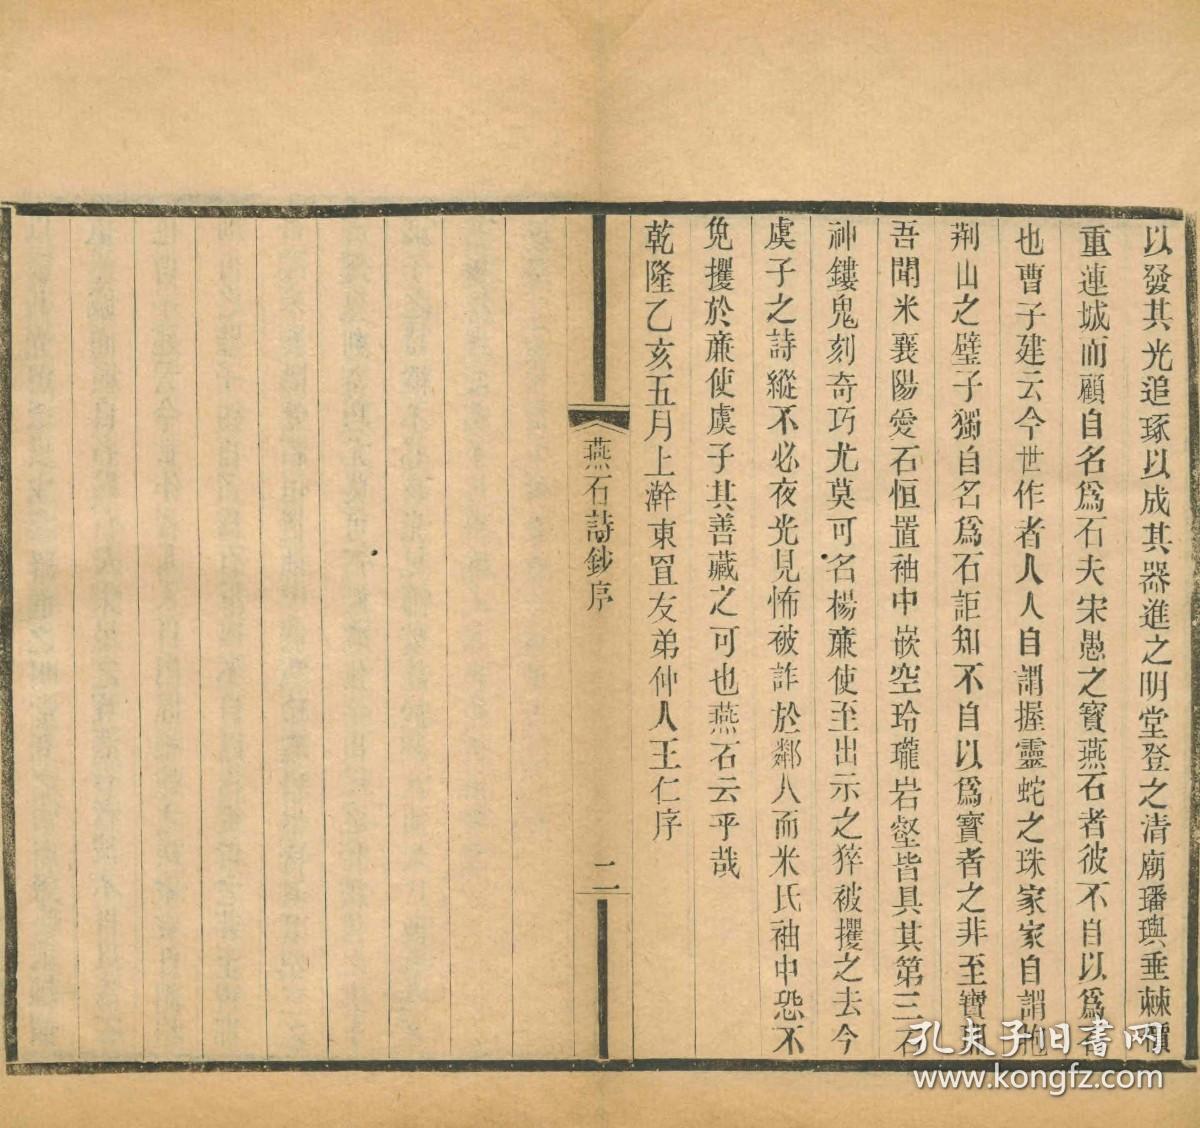 以發其光追琢以成其器進之明堂登之清廟璠璵垂棘價
重連城而顧自名爲石夫宋愚之寳燕石者彼不自以爲石
也曹子建云今世作者人人自謂握靈蛇之珠家家自謂抱
荆山之璧子獨自名爲石詎知不自以爲寳者之非至寳耶
吾聞米襄陽愛石恒置袖中嵌空玲瓏岩壑皆具其第三石
神鏤鬼刻奇巧尤莫可名楊亷使至出示之猝被攫之去今
虞子之詩縱不必夜光見怖被詐於鄰人而米氏袖中恐不
免攫於亷使虞子其善藏之可也燕石云乎哉
乾隆乙亥五月上澣東罝友弟仲人王仁序
燕石詩鈔序
二
孔夫子旧书网
www.kongfz.com